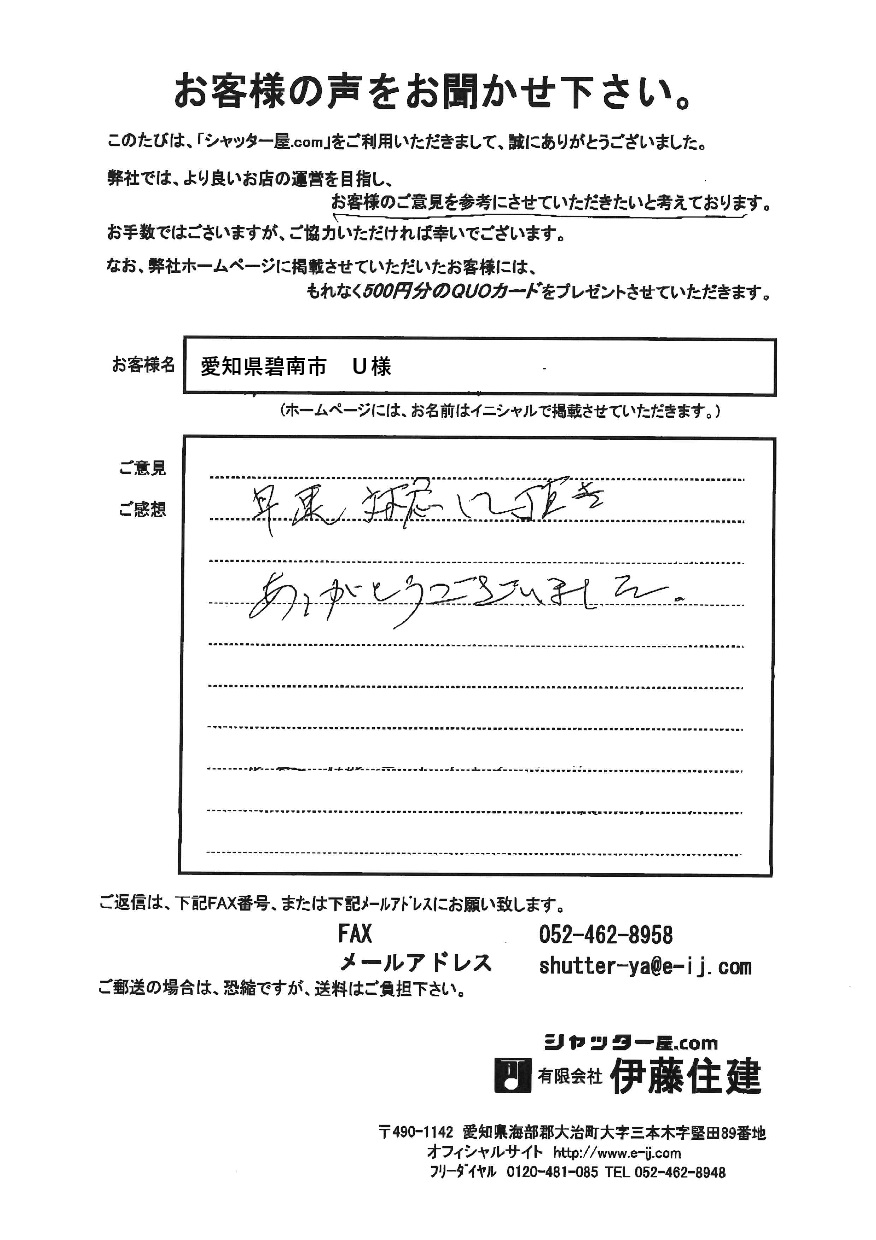 お客様の声をお聞かせ下さい。
このたびは、「シャッター屋.com」をご利用いただきまして、誠にありがとうございました。
弊社では、より良いお店の運営を目指し、
お客様のご意見を参考にさせていただきたいと考えております。
お手数ではごさいますが、ご協力いただければ幸いでございます。
なお、弊社ホームページに掲載させていただいたお客様には、
もれなく500円分のQUOカードをプレゼントさせていただきます。
お客様名 愛知県碧南市 U様
(ホームページには、お名前はイニシャルで掲載させていただきます。)
ご意見
ご感想
早速 対応して頂き
ありがとうございました。
ご返信は、下記FAX番号、または下記メールアドレスにお願い致します。
FAX 052-462-8958
メールアドレス shutter-ya@e-ij.com
ご郵送の場合は、恐縮ですが、送料はご負担下さい。
シャッター屋.com
有限会社 伊藤住建
〒490-1142 愛知県海部郡大治町大字三本木字堅田89番地
オフィシャルサイト http://www.e-ij.com
フリーダイヤル 0120-481-085 TEL 052-462-8948